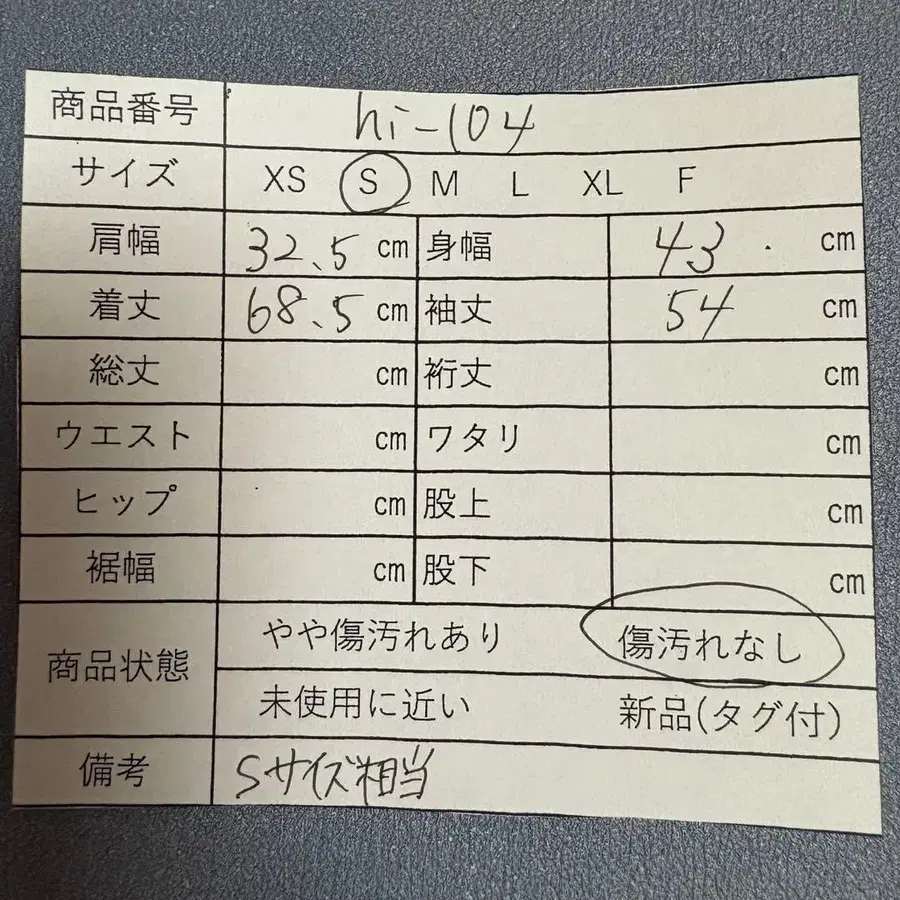 商品番号 hi-104
サイズ XS S M L XL F
肩幅 32.5 cm 身幅 43 cm
着丈 68.5 cm 袖丈 54 cm
総丈 cm 裄丈 cm
ウエスト cm ワタリ cm
ヒップ cm 股上 cm
裾幅 cm 股下 cm
商品状態 やや傷汚れあり 傷汚れなし
未使用に近い 新品(タグ付)
備考 Sサイズ相当